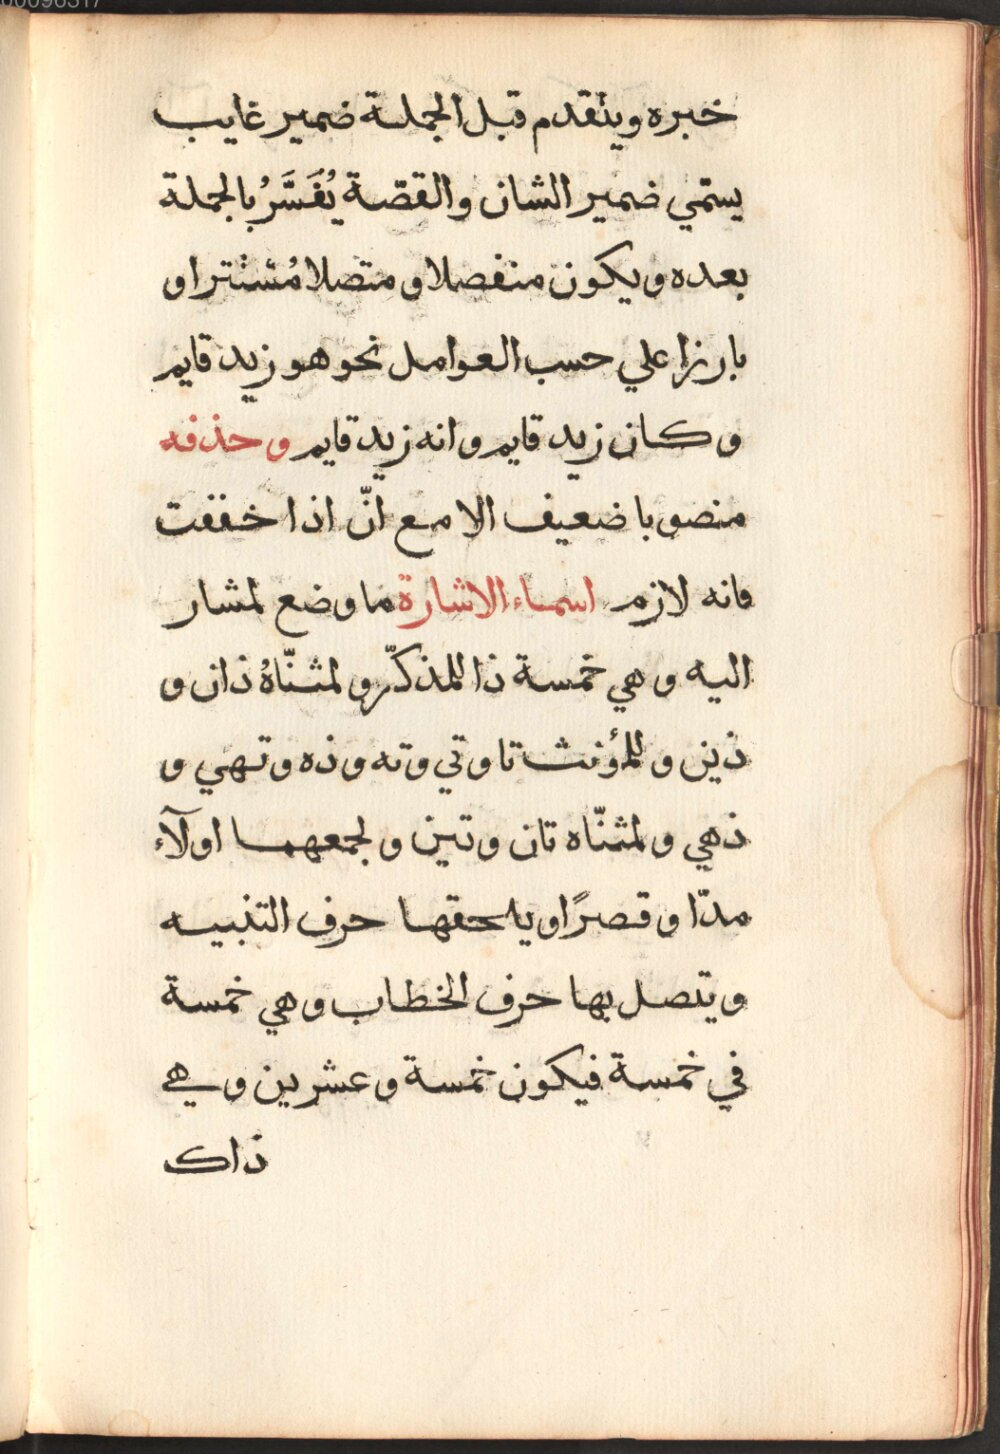 خبره ويتقدم قبل الجملة ضمير غايب
يسمي ضمير الشان والقصّة يُفَسَّرُ بالجملة
بعده ويكون منفصلا ومتصلا مُستترا و
بارزا علي حسب العوامل نحو هو زيد قايم
وكان زيد قايم وانه زيد قايم وحذفه
منصوبا ضعيف الا مع انّ اذا خففت
فانه لازم اسماء الاشارة ما وضع لمشار
اليه وهي خمسة ذا للمذكّر ولمثنّاهُ ذان و
ذين وللمؤنث تا وتي وته وذه وتهي و
ذهي ولمثنّاه تان وتين ولجمعهما اولآء
مدّا وقصرًا ويلحقها حرف التنبيه
ويتصل بها حرف الخطاب وهي خمسة
في خمسة فيكون خمسة وعشرين وهي
ذاك